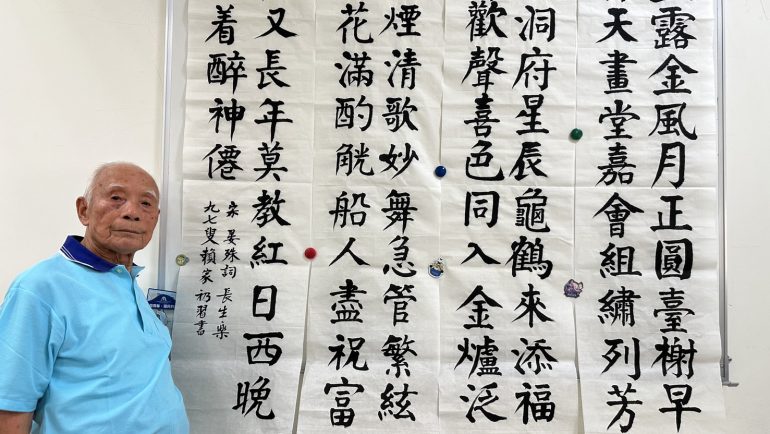 露金風月正圓臺榭早
天畫堂嘉會組繡列芳
洞府星辰龜鶴來添福
歡聲喜色同入金爐泛
煙清歌妙舞急管繁絃
花滿酌觥船人盡祝富
又長年莫教紅日西晚
着醉神僊
宋晏殊詞長生樂
九七叟賴家礽習書